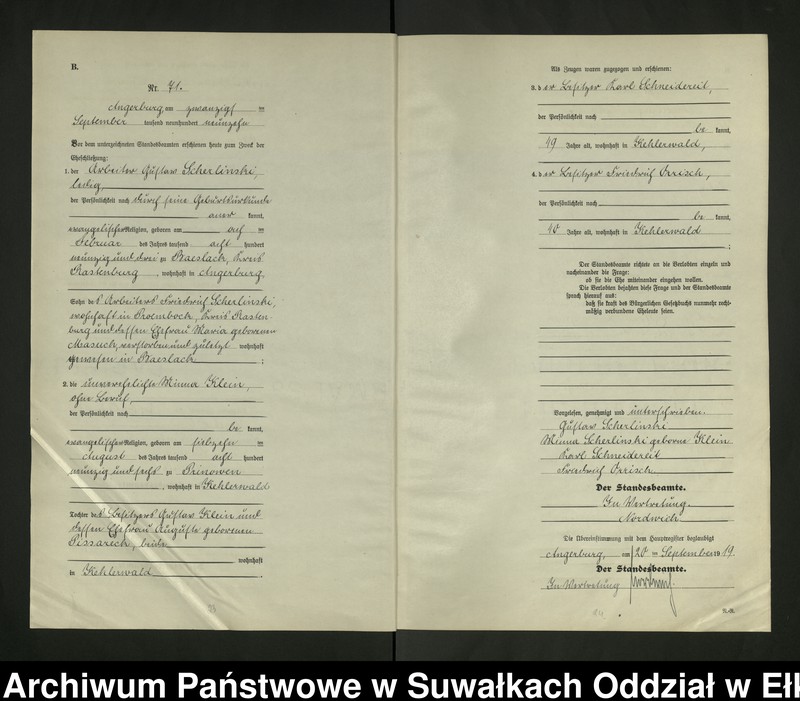 B.
Nr. 71.
Angerburg, am zwanzigs ten
September tausend neunhundert neunzehn
Vor dem unterzeichneten Standesbeamten erschienen heute zum Zweck der
Eheschließung:
1. der Arbeiter Gustav Scherlinski,
ledig,
der Persönlichkeit nach durch seine Geburtsurkunde
aner kannt,
evangelischer Religion, geboren am ach ten
Februar des Jahres tausend acht hundert
neunzig und drei zu Baeslack, Kreis
Rastenburg, wohnhaft in Angerburg.
Sohn des Arbeiters Friedrich Scherlinski,
wohnhaft in Kreis Rasten-
burg und dessen Ehefrau Maria geborenen
Masuch, verstorben und zuletzt wohnhaft
gewesen in Baeslack ;
2. die unverehelichte Minna Klein,
ohne Beruf,
der Persönlichkeit nach
be kannt,
evangelischer Religion, geboren am siebzehn ten
August des Jahres tausend acht hundert
neunzig und sechs zu Prinowen
, wohnhaft in Kehlerwald
Tochter des Besitzers Gustav Klein und
dessen Ehefrau Auguste geborenen
Pissarech, beide
wohnhaft
in Kehlerwald .
Als Zeugen waren zugezogen und erschienen:
3. der Besitzer Karl Schneidereit,
der Persönlichkeit nach
be kannt,
49 Jahre alt, wohnhaft in Kehlerwald,
4. der Besitzer Friedrich Orrisch,
der Persönlichkeit nach
be kannt,
40 Jahre alt, wohnhaft in Kehlerwald
;
Der Standesbeamte richtete an die Verlobten einzeln und
nacheinander die Frage:
ob sie die Ehe miteinander eingehen wollen.
Die Verlobten bejahten diese Frage und der Standesbeamte
sprach hierauf aus:
daß sie kraft des Bürgerlichen Gesetzbuchs nunmehr recht-
mäßig verbundene Eheleute seien.
Vorgelesen, genehmigt und unterschrieben.
Gustav Scherlinski
Minna Scherlinski geborne Klein
Karl Schneidereit
Friedrich Orrisch
Der Standesbeamte.
In Vertretung.
Nordwich
Die Übereinstimmung mit dem Hauptregister beglaubigt
Angerburg, am 20 ten September 1919.
Der Standesbeamte.
In Vertretung
Archiwum Państwowe w Suwałkach Oddział w Ełk